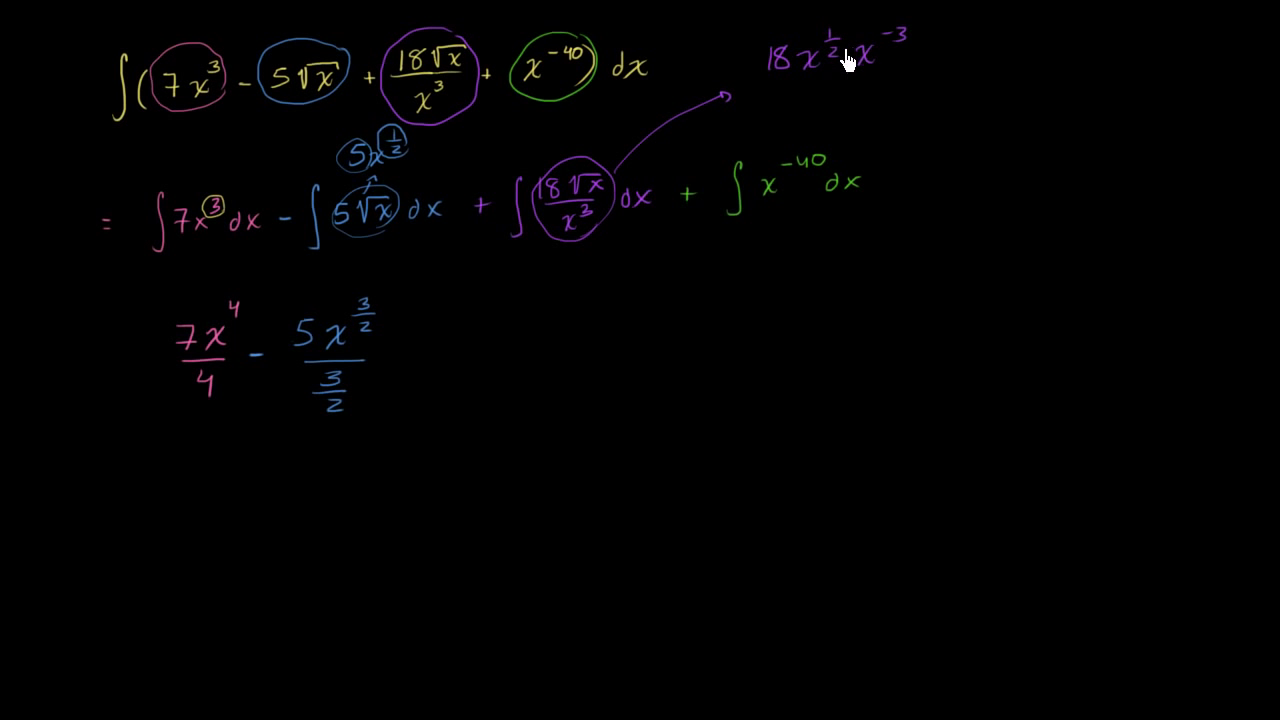 ∫(7x³ - 5√x + 18√x/x³ + x⁻⁴⁰) dx
18x^(1/2) x⁻³
5x^(1/2)
= ∫7x³ dx - ∫5√x dx + ∫18√x/x³ dx + ∫x⁻⁴⁰ dx
7x⁴/4 - 5x^(3/2)/(3/2)